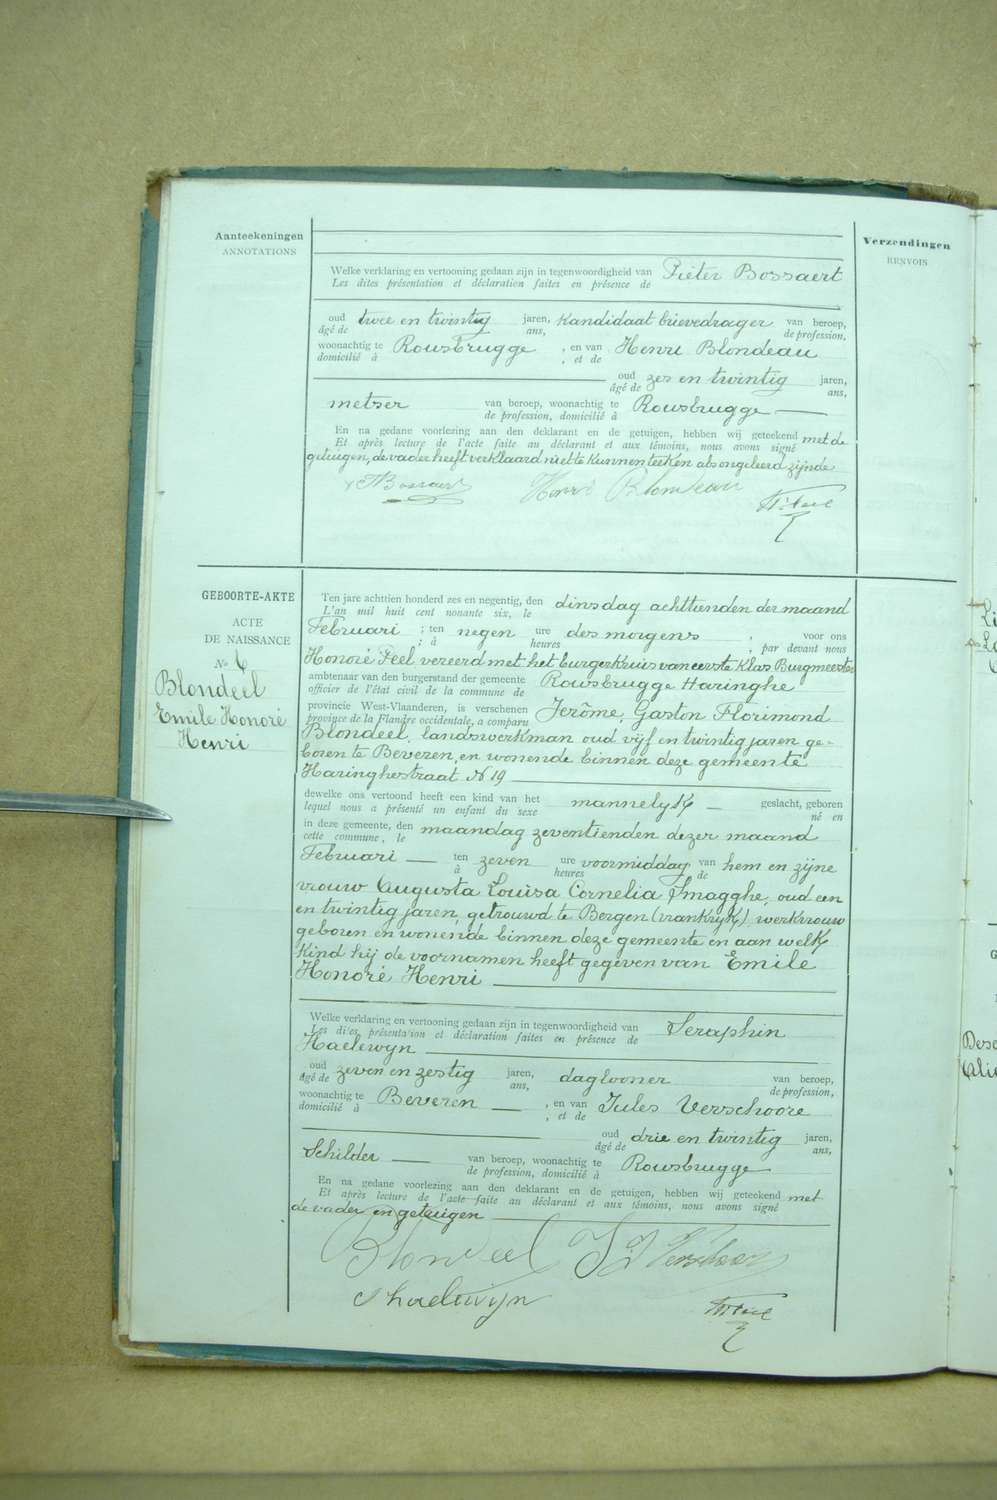 Aanteekeningen
ANNOTATIONS
Verzendingen
RENVOIS
Welke verklaring en vertooning gedaan zijn in tegenwoordigheid van Pieter Bossaert
Les dites présentation et déclaration faites en présence de
oud twee en twintig jaren, kandidaat brievedrager van beroep,
âgé de ans, de profession,
woonachtig te Rousbrugge , en van Henri Blondeau
domicilié à , et de
oud zes en twintig jaren,
âgé de ans,
metser van beroep, woonachtig te Rousbrugge
de profession, domicilié à
En na gedane voorlezing aan den deklarant en de getuigen, hebben wij geteekend met de
Et après lecture de l'acte faite au déclarant et aux témoins, nous avons signé
getuigen, de vader heeft verklaard niet te kunnen teeken als ongeleerd zijnde
Bossaert Henri Blondeau
GEBOORTE-AKTE
ACTE
DE NAISSANCE
No 6
Blondeel
Emile Honoré
Henri
Ten jare achttien honderd zes en negentig, den dinsdag achttienden der maand
L'an mil huit cent nonante six, le
Februari ; ten negen ure des morgens ; voor ons
; à heures ; par devant nous
Honoré Feel vereerd met het burgerkruis van eerste klas Burgmeester
ambtenaar van den burgerstand der gemeente Rousbrugge Haringhe
officier de l'état civil de la commune de
provincie West-Vlaanderen, is verschenen Jerôme, Gaston Florimond
province de la Flandre occidentale, a comparu
Blondeel, landswerkman oud vijf en twintig jaren ge-
boren te Beveren, en wonende binnen deze gemeente
Haringhestraat No 19
dewelke ons vertoond heeft een kind van het mannelyk geslacht, geboren
lequel nous a présenté un enfant du sexe né en
in deze gemeente, den maandag zeventienden dezer maand
cette commune, le
Februari ten zeven ure voormiddag van hem en zijne
à heures de
vrouw Augusta Louisa Cornelia Smagghe, oud een
en twintig jaren, getrouwd te Bergen (vrankryk) werkvrouw
geboren en wonende binnen deze gemeente en aan welk
kind hij de voornamen heeft gegeven van Emile
Honoré Henri
Welke verklaring en vertooning gedaan zijn in tegenwoordigheid van Seraphin
Les dites présentation et déclaration faites en présence de
Haelewyn
oud zeven en zestig jaren, daglooner van beroep,
âgé de ans, de profession,
woonachtig te Beveren , en van Jules Verschoore
domicilié à , et de
oud drie en twintig jaren,
âgé de ans,
Schilder van beroep, woonachtig te Rousbrugge
de profession, domicilié à
En na gedane voorlezing aan den deklarant en de getuigen, hebben wij geteekend met
Et après lecture de l'acte faite au déclarant et aux témoins, nous avons signé
de vader en getuigen
Blondeel
S haelewijn